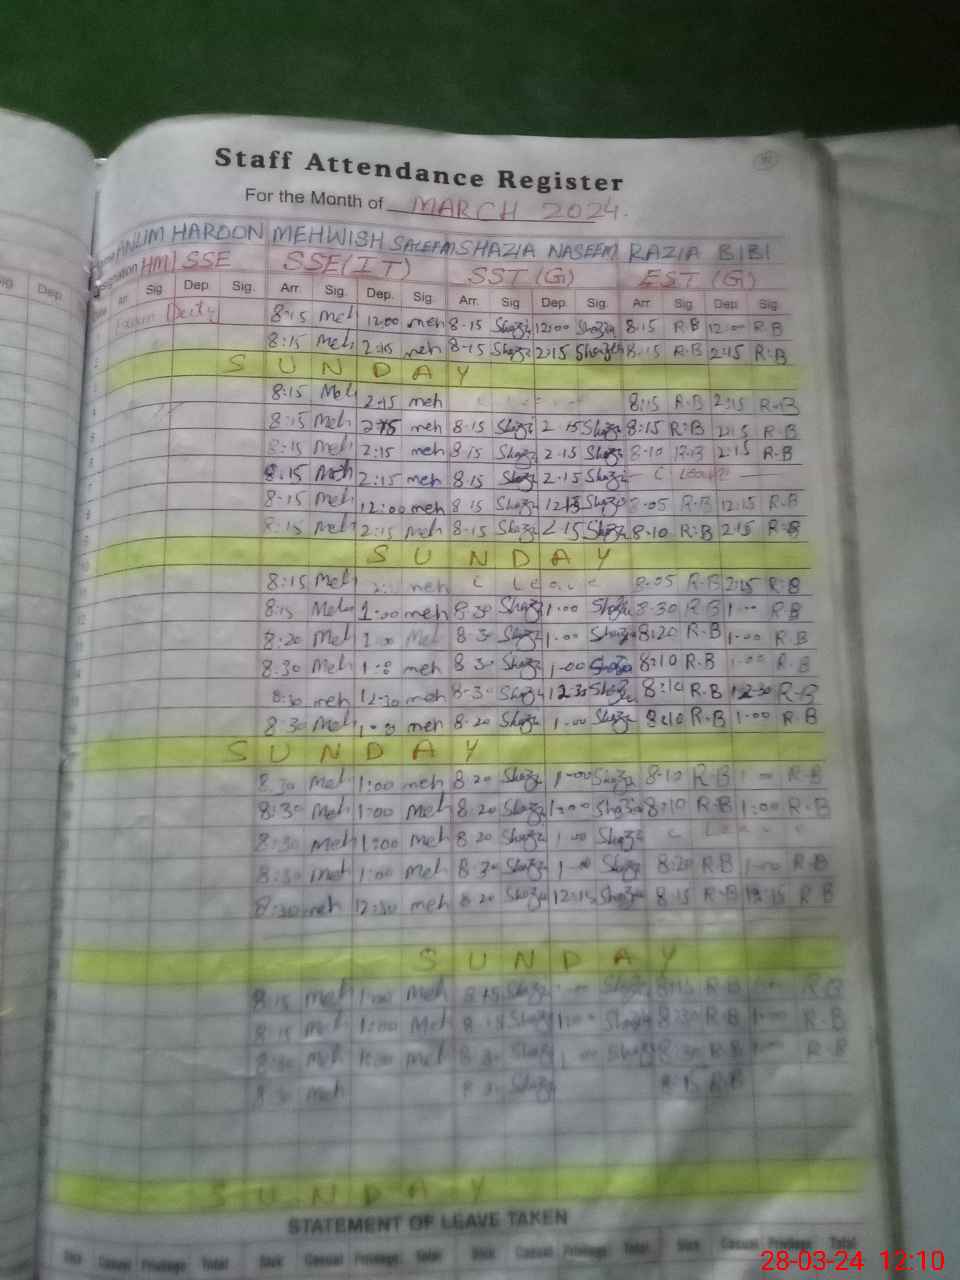 Staff Attendance Register
For the Month of MARCH 2024.
ANUM HAROON MEHWISH SALEEM SHAZIA NASEEM RAZIA BIBI
HM SSE SSE(IT) SST (G) EST (G)
Arr. Sig. Dep. Sig. Arr. Sig. Dep. Sig. Arr. Sig Dep. Sig. Arr. Sig Dep. Sig.
Duty 8:15 Meh 12:00 meh 8-15 Shazi 12:00 Shazia 8:15 R.B 12:00 R.B
8:15 Meh 2:15 meh 8-15 Shazi 2:15 Shazia 8:15 R.B 2:15 R.B
SUNDAY
8:15 Meh 2:15 meh 8:15 R.B 2:15 R.B
8:15 Meh 2:15 meh 8-15 Shazi 2-15 Shazi 8:15 R.B 2:15 R.B
8:15 Meh 2:15 meh 8-15 Shazi 2-15 Shazi 8-10 2:15 R.B
8:15 Meh 2:15 meh 8-15 Shazi 2-15 Shazi C Leave
8:15 Meh 12:00 meh 8-15 Shazi 12:15 Shazi 8-05 R.B 12:15 R.B
8:15 Meh 2:15 Meh 8-15 Shazi 2-15 Shazi 8-10 R.B 2:15 R.B
SUNDAY
8:15 Meh meh C Leave 8-05 R.B 2:15 R.B
8:15 Meh 1:00 meh 8-30 Shazi 1-00 Shazi 8-30 R.B 1-00 R.B
8:20 Meh 1:00 Meh 8-30 Shazi 1-00 Shazi 8:20 R.B 1-00 R.B
8:30 Meh meh 8-30 Shazi 1-00 Shazi 8:10 R.B 1-00 R.B
8:30 meh 12-30 meh 8-30 Shazi 12-30 Shazi 8:10 R.B 12-30 R.B
8:30 Meh meh 8-20 Shazi 1-00 Shazi 8:10 R.B 1-00 R.B
SUNDAY
8:30 Meh 1:00 meh 8-20 Shazi 1-00 Shazi 8-10 R.B 1-00 R.B
8:30 Meh 1:00 Meh 8-20 Shazi 1:00 Shazi 8:10 R.B 1:00 R.B
8:30 Meh 1:00 Meh 8-20 Shazi 1-00 Shazi C Leave
8:30 meh 1:00 Meh 8-30 Shazi 1-00 Shazi 8:20 R.B 1-00 R.B
8:30 meh 12:30 meh 8-20 Shazi 12:15 Shazi 8:15 R.B 12:15 R.B
SUNDAY
8:15 meh 1:00 Meh 8-15 Shazi Shazi 8:15 R.B R.B
8:15 meh 1:00 Meh 8-15 Shazi 1:00 Shazi 8:30 R.B 1:00 R.B
8:30 Meh 1:00 Meh 8-30 Shazi 1-00 Shazi 8:30 R.B R.B
8:30 meh 8-30 Shazi 8:15 R.B
SUNDAY
STATEMENT OF LEAVE TAKEN
Sick Casual Privilege Total Sick Casual Privilege Total Sick Casual Privilege Total Sick Casual Privilege Total
28-03-24 12:10